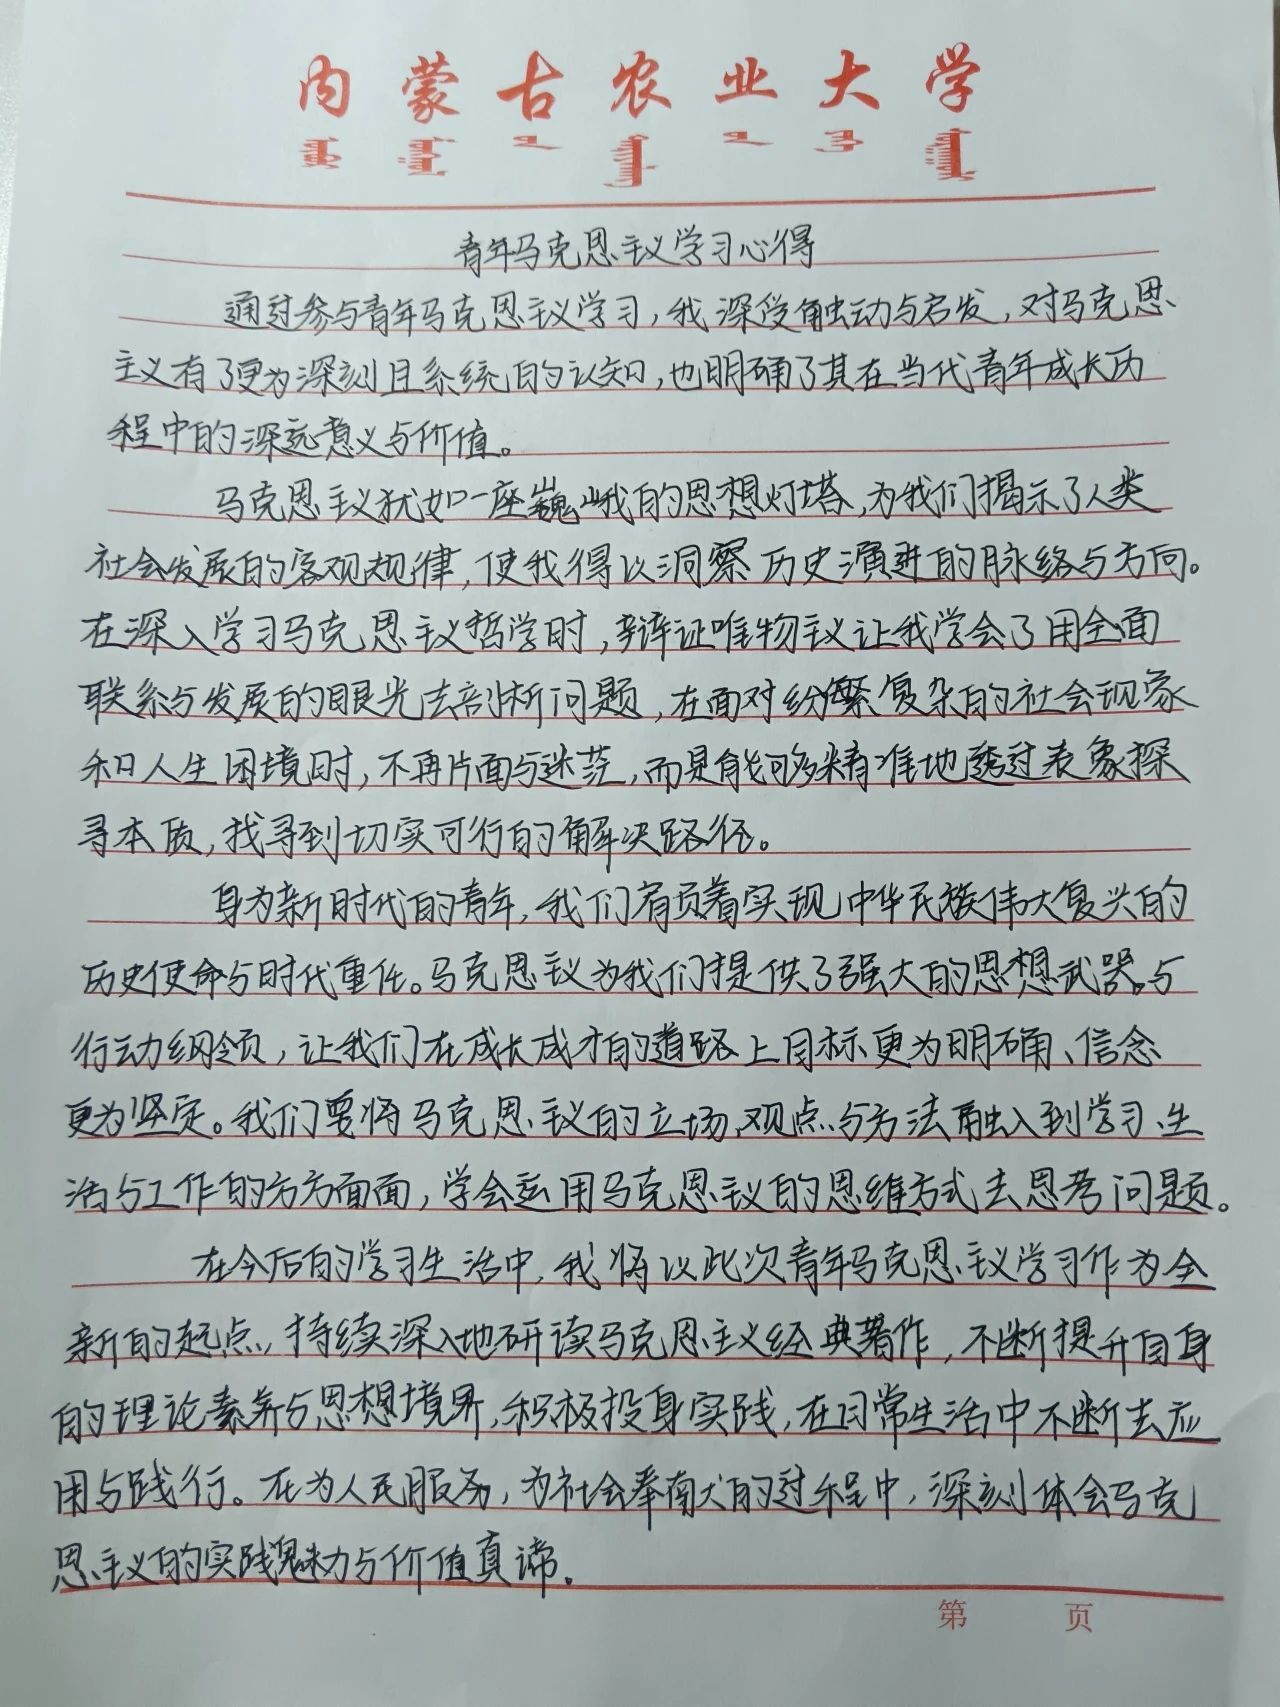 内蒙古农业大学
青年马克思主义学习心得
通过参与青年马克思主义学习，我深受触动与启发，对马克思
主义有了更为深刻且系统的认知，也明确了其在当代青年成长历
程中的深远意义与价值。
马克思主义犹如一座巍峨的思想灯塔，为我们揭示了人类
社会发展的客观规律，使我得以洞察历史演进的脉络与方向。
在深入学习马克思主义哲学时，辩证唯物主义让我学会了用全面
联系与发展的眼光去剖析问题，在面对纷繁复杂的社会现象
和人生困境时，不再片面与迷茫，而是能够精准地透过表象探
寻本质，找寻到切实可行的解决路径。
身为新时代的青年，我们肩负着实现中华民族伟大复兴的
历史使命与时代重任。马克思主义为我们提供了强大的思想武器。与
行动纲领，让我们在成长成才的道路上目标更为明确、信念
更为坚定。我们要将马克思主义的立场、观点与方法融入到学习、生
活与工作的方方面面，学会运用马克思主义的思维方式去思考问题。
在今后的学习生活中，我将以此次青年马克思主义学习作为全
新的起点，持续深入地研读马克思主义经典著作，不断提升自身
的理论素养与思想境界，积极投身实践，在日常生活中不断去应
用与践行。在为人民服务，为社会奉献的过程中，深刻体会马克
思主义的实践魅力与价值真谛。
第 页